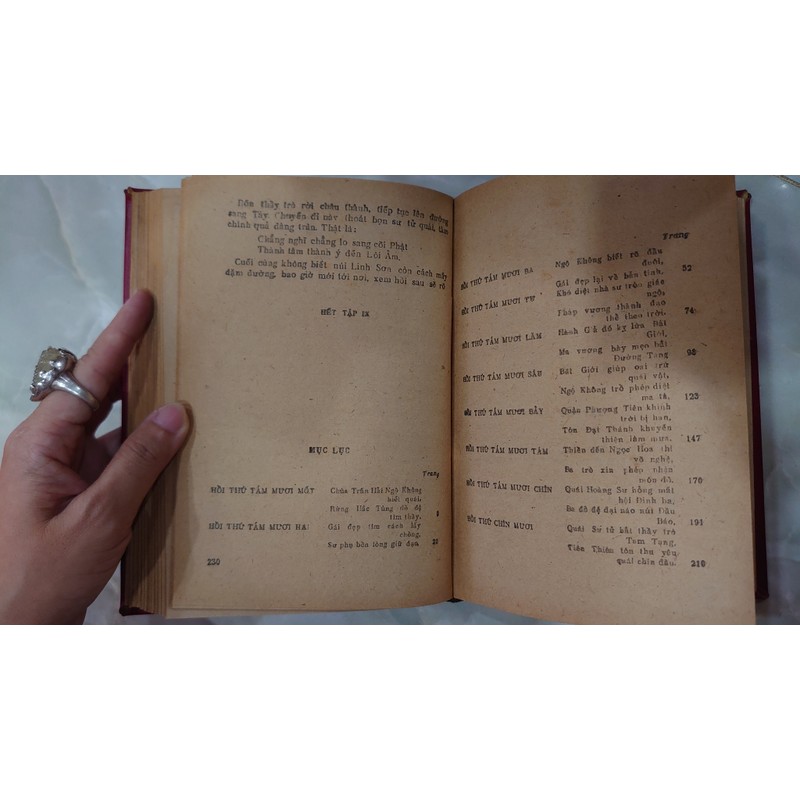 Bốn thầy trò rời châu thành, tiếp tục lên đường
sang Tây. Chuyến đi này thoát bọn sư tử quái, tâm
chính quả đăng trăn. Thật là:
Chẳng nghĩ chẳng lo sang cõi Phật
Thành tâm thành ý đến Lôi Âm.
Cuối cùng không biết núi Linh Sơn còn cách mấy
dặm đường, bao giờ mới tới nơi, xem hồi sau sẽ rõ
HẾT TẬP IX
MỤC LỤC
Trang
HỒI THỨ TÁM MƯƠI MỐT Chùa Trấn Hải Ngộ Không
biết quái,
Rừng Hắc Tùng đồ đệ
tìm thầy. 5
HỒI THỨ TÁM MƯƠI HAI Gái đẹp tìm cách lấy
chồng,
Sư phụ bền lòng giữ đạo
230
Trang
HỒI THỨ TÁM MƯƠI BA Ngộ Không biết rõ đầu
đuôi,
Gái đẹp lại về bản tính. 52
HỒI THỨ TÁM MƯƠI TƯ Khó diệt nhà sư tròn giác
ngộ,
Pháp vương thành đạo
thề theo trời. 74
HỒI THỨ TÁM MƯƠI LĂM Hành Giả đố kỵ lừa Bát
Giới,
Ma vương bày mẹo bắt
Đường Tăng 98
HỒI THỨ TÁM MƯƠI SÁU Bát Giới giúp oai trừ
quái vật,
Ngộ Không trổ phép diệt
ma tà. 123
HỒI THỨ TÁM MƯƠI BẢY Quận Phượng Tiên khinh
trời bị hạn,
Tôn Đại Thánh khuyến
thiện làm mưa. 147
HỒI THỨ TÁM MƯƠI TÁM Thiền đến Ngọc Hoa thi
võ nghệ,
Ba trò xin phép nhận
môn đồ. 170
HỒI THỨ TÁM MƯƠI CHÍN Quái Hoàng Sư hỏng mất
hội Đinh ba,
Ba đồ đệ đại náo núi Đầu
Báo, 191
HỒI THỨ CHÍN MƯƠI Quái Sư tử bắt thầy trò
Tam Tạng,
Tiên Thiên tôn thu yêu
quái chín đầu. 210